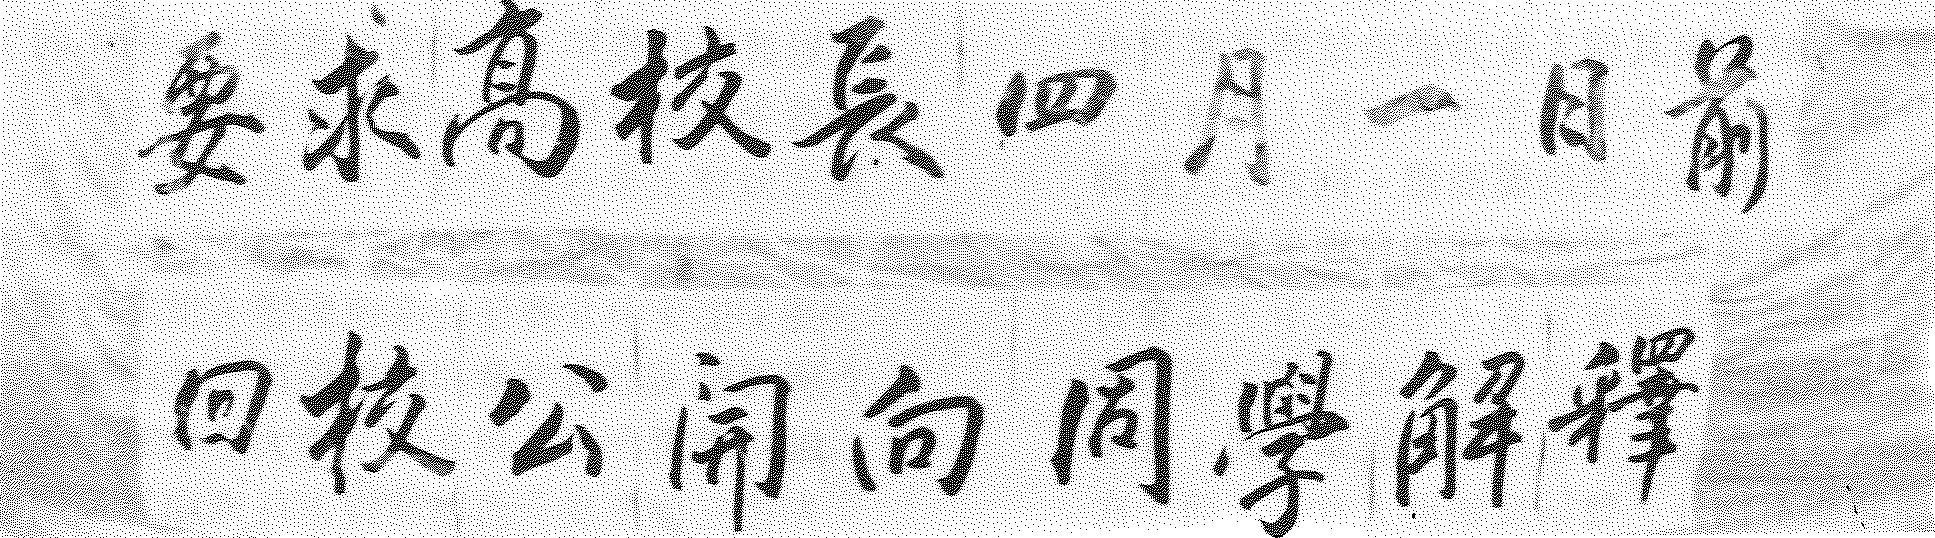 要求高校長四月一日前
回校公開向同學解釋